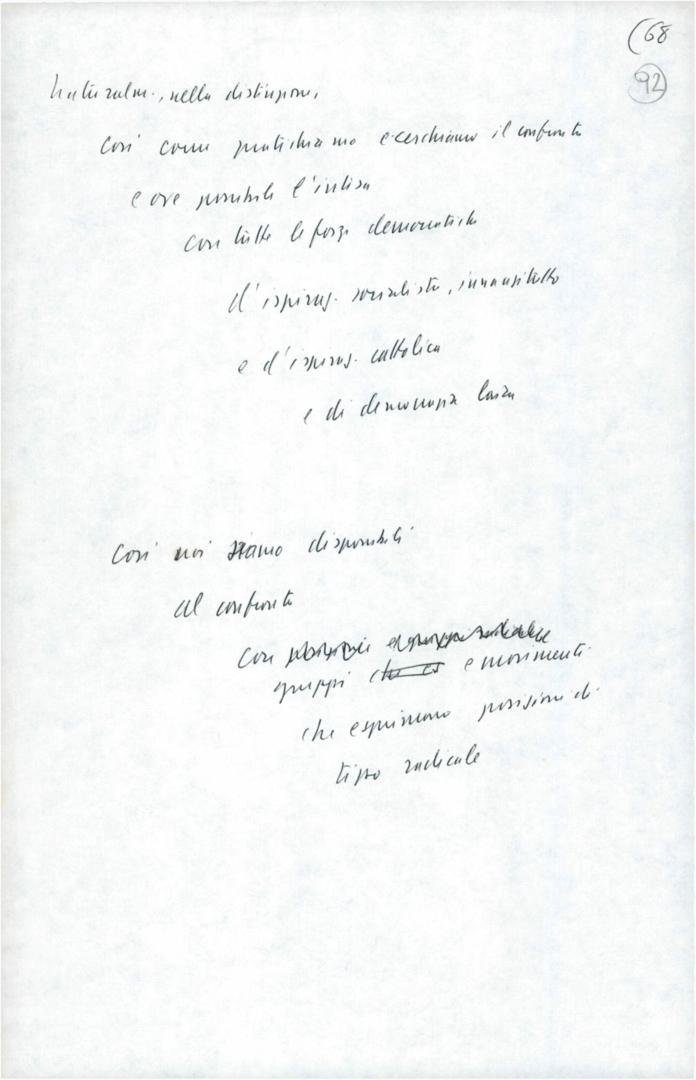 (68
92
Naturalm., nella distinzione,
Così come pratichiamo e cerchiamo il confronto
e ove possibile l'intesa
con tutte le forze democratiche
d'ispiraz. socialista, innanzitutto
e d'ispiraz. cattolica
e di democrazia laica
Così noi siamo disponibili
al confronto
con
gruppi che es e movimenti
che esprimono posizioni di
tipo radicale